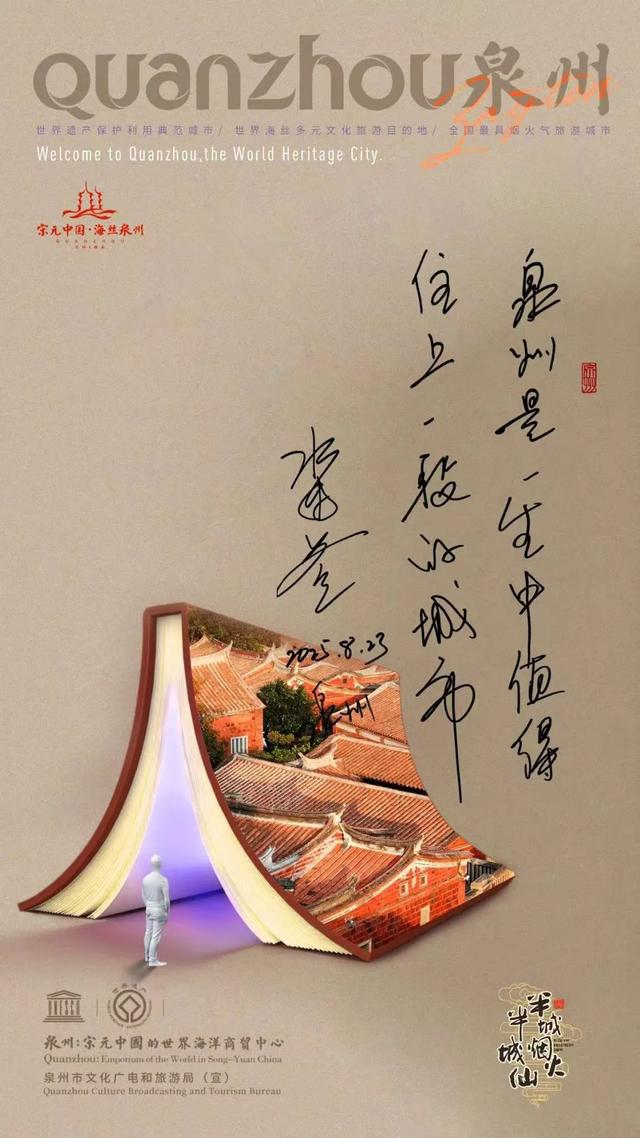 Quanzhou泉州
世界遗产保护利用典范城市/ 世界海丝多元文化旅游目的地/ 全国最具烟火气旅游城市
Welcome to Quanzhou,the World Heritage City.
宗元中国·海丝泉州
QUANZHOU
CHINA
泉州是一生中值得
住上一段的城市
2025.8.23
泉州
UNESCO
世界遗产
泉州:宗元中國的世界海洋商貿中心
Quanzhou: Emporium of the World in Song-Yuan China
泉州市文化广电和旅游局（宣）
Quanzhou Culture Broadcasting and Tourism Bureau
半城烟火
半城仙